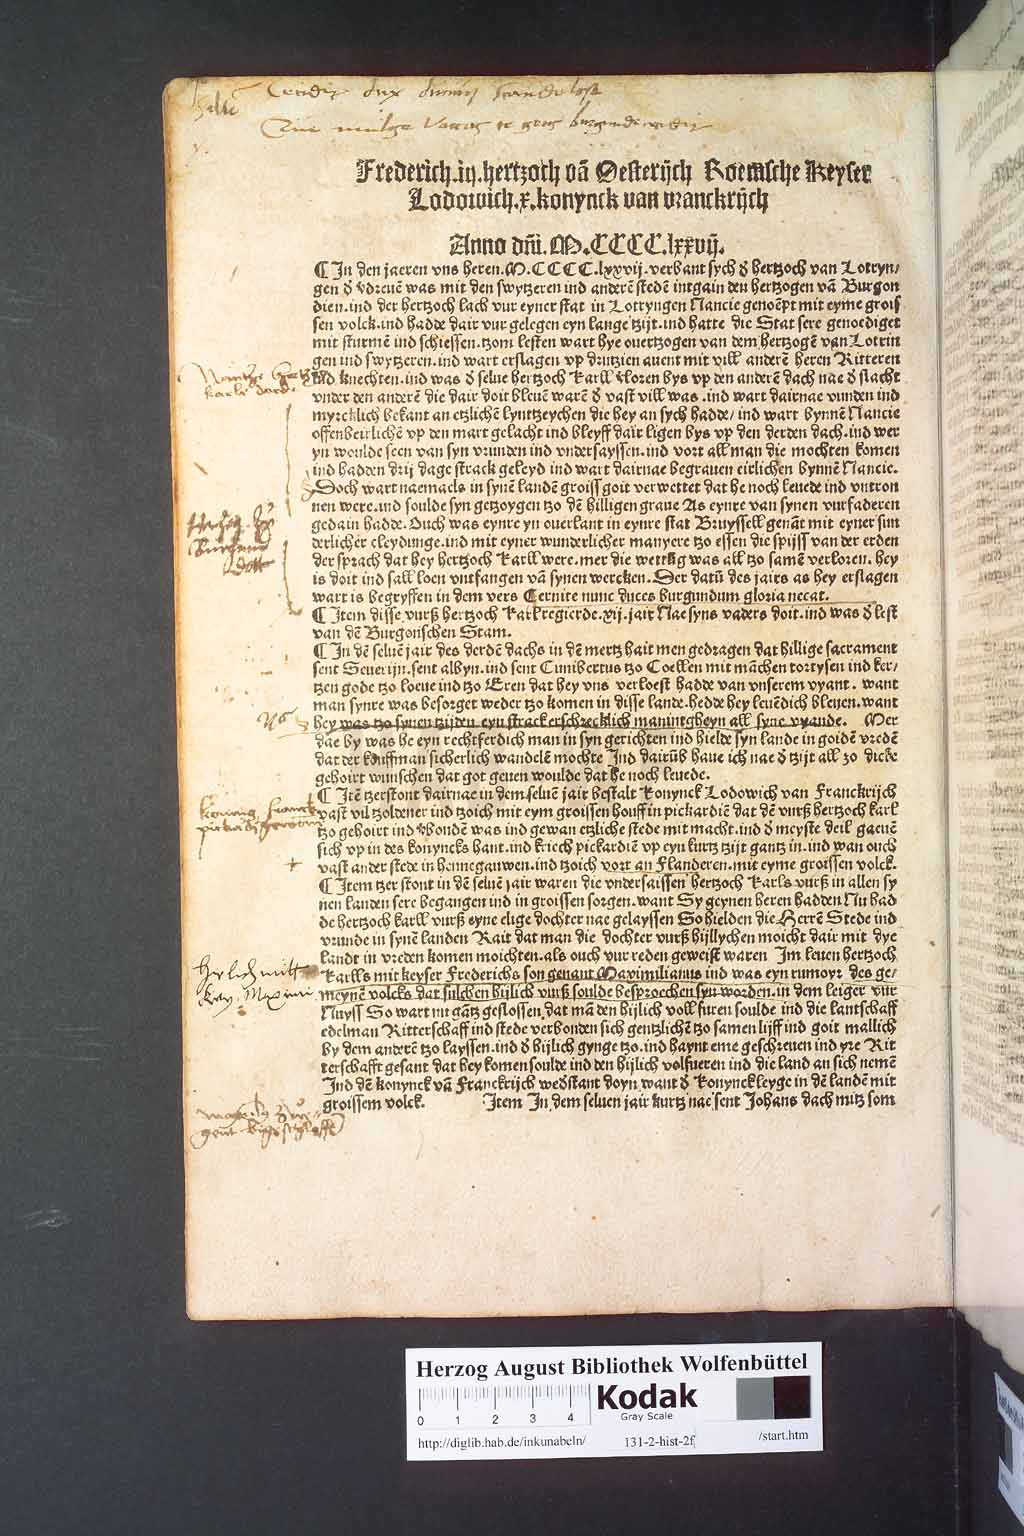 Frederich.iij.hertzoch vã Oesterijch Roemsche Keyser
Lodowich.x.konynck van vranckrijch
Anno dñi.M.CCCC.lxxvij.
¶ In den jaeren vns heren.M.CCCC.lxxvij.verbant sych d̕ hertzoch van Lotryn/
gen d̕ v̕dreuẽ was mit den swytzeren ind anderẽ stedẽ intgain den hertzogen vã Burgon
dien.ind der hertzoch lach vur eyner stat in Lotryngen Nancie genoẽpt mit eyme grois
sen volck.ind hadde dair vur gelegen eyn lange tzijt.ind hatte die Stat sere genoediget
mit sturmẽ ind schiessen.tzom lesten wart hye ouertzogen van dem hertzogẽ van Lottrin
gen ind swytzeren.ind wart erslagen vp drutzien auent mit vill anderẽ heren Ritteren
ind knechten.ind was d̕ selue hertzoch Karll v̕loren bys vp den anderẽ dach nae d̕ slacht
vnder den anderẽ die dair doit bleuẽ warẽ d̕ vast vill was.ind wart dairnae vunden ind
myrcklich bekant an etzlichẽ lyntzeychen die hey an sych hadde/ ind wart bynnẽ Nancie
offenbeirlichẽ vp den mart gelacht ind bleyff dair ligen bys vp den derden dach.ind wer
yn woulde seen van syn vrunden ind vndersayssen.ind vort all man die mochten komen
ind hadden drij dage strack geleyd ind wart dairnae begrauen eirlichen bynnẽ Nancie.
Doch wart naemaels in synẽ landẽ groiss goit verwettet dat he noch leuede ind vntron
nen were.ind soulde syn getzoygen tzo dẽ hilligen graue As eynre van synen vurfaderen
gedain hadde.Ouch was eynre yn ouerlant in eynre stat Bruyssell genãt mit eyner sun
derlicher cleydunge.ind mit eyner wunderlicher manyere tzo essen die spijss van der erden
der sprach dat hey hertzoch Karll were.mer die wettũg was all tzo samẽ verloren. hey
is doit ind sall loen vntfangen vã synen wercken. Der datũ des jairs as hey erslagen
wart is begryffen in dem vers Cernite nunc duces burgundum gloria necat.
¶ Item disse vurß hertzoch Karll regierde.xij.jair Nae syns vaders doit.ind was d̕ lest
van dẽ Burgonschen Stam.
¶ In dẽ seluẽ jair des derdẽ dachs in dẽ mertz hait men gedragen dat hillige sacrament
sent Seuerijn.sent albyn.ind sent Cunibertus tzo Coellen mit mãchen tortysen ind ker/
tzen gode tzo loeue ind tzo Eren dat hey vns verloest hadde van vnserem vyant. want
man synre was besorget weder tzo komen in disse lande.hedde hey leuẽdich bleuen.want
hey was tzo synen tzijden eyn strack erschrecklich man intgheyn all syne vyande. Mer
dae by was he eyn rechtferdich man in syn gerichten ind hielde syn lande in goidẽ vredẽ
dat der kouffman sicherlich wandelẽ mochte Ind dairũb haue ich nae d̕ tzijt all zo dicke
gehoirt wunschen dat got geuen woulde dat he noch leuede.
¶ Itẽ tzerstont dairnae in dem seluẽ jair bestalt Konynck Lodowich van Franckrijch
vast vil tzoldener ind tzoich mit eym groissen houff in pickardiẽ dat dẽ vurß hertzoch karl
tzo gehoirt ind v̕bondẽ was ind gewan etzliche stede mit macht.ind d̕ meyste deil gaeuẽ
sich vp in des konyncks hant.ind kriech pickardiẽ vp eyn kurtz tzijt gantz in.ind wan ouch
vast ander stede in hennegauwen.ind tzoich vort an Flanderen.mit eyme groissen volck.
¶ Item tzer stont in dẽ seluẽ jair waren die vndersaissen hertzoch Karls vurß in allen sy
nen landen sere begangen ind in groissen sorgen.want Sy geynen heren hadden Nu had
de hertzoch karll vurß eyne elige dochter nae gelayssen So hielden die Herrẽ Stede ind
vrunde in synẽ landen Rait dat man die dochter vurß hijllychen moicht dair mit dye
landt in vreden komen moichten.als ouch vur reden geweist waren Im leuen hertzoch
Karlls mit keyser Frederichs son genant Maximilianus ind was eyn rumoyr des ge/
meynẽ volcks dat sulchen hijlich vurß soulde besproechen syn worden.in dem leiger vur
Nuyss So wart nu gãtz geslossen.dat mã den hijlich voll furen soulde ind die lantschaff
edelman Ritterschaff ind stede verbonden sich gentzlichẽ tzo samen lijff ind goit mallich
by dem anderẽ tzo layssen.ind d̕ hijlich gynge tzo.ind haynt eme geschreuen ind yre Rit
terschafft gesant dat hey komen soulde ind den hijlich volfueren ind die land an sich nemẽ
Ind dẽ konynck vã Franckrijch wedstant doyn want d̕ Konynck leyge in dẽ landẽ mit
groissem volck. Item In dem seluen jair kurtz nae sent Johans dach mitz som
Herzog August Bibliothek Wolfenbüttel
0 1 2 3 4
Kodak
Gray Scale
http://diglib.hab.de/inkunabeln/ 131-2-hist-2f /start.htm